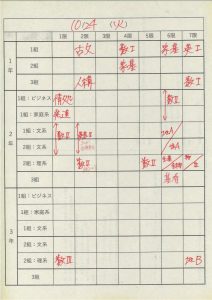 10/24 (火)
1限 2限 3限 4限 5限 6限 7限
1年
1組 古文 数I 家基 英I
2組 家基
3組 人構 数I
2年
1組：ビジネス 情処 数II
1組：家庭系 発達
1組：文系 数II
2組：文系 地A
2組：理系 数II 数II
3組
3年
1組：ビジネス
1組：家庭系
1組：文系
2組：文系
2組：理系 数III 地B
3組